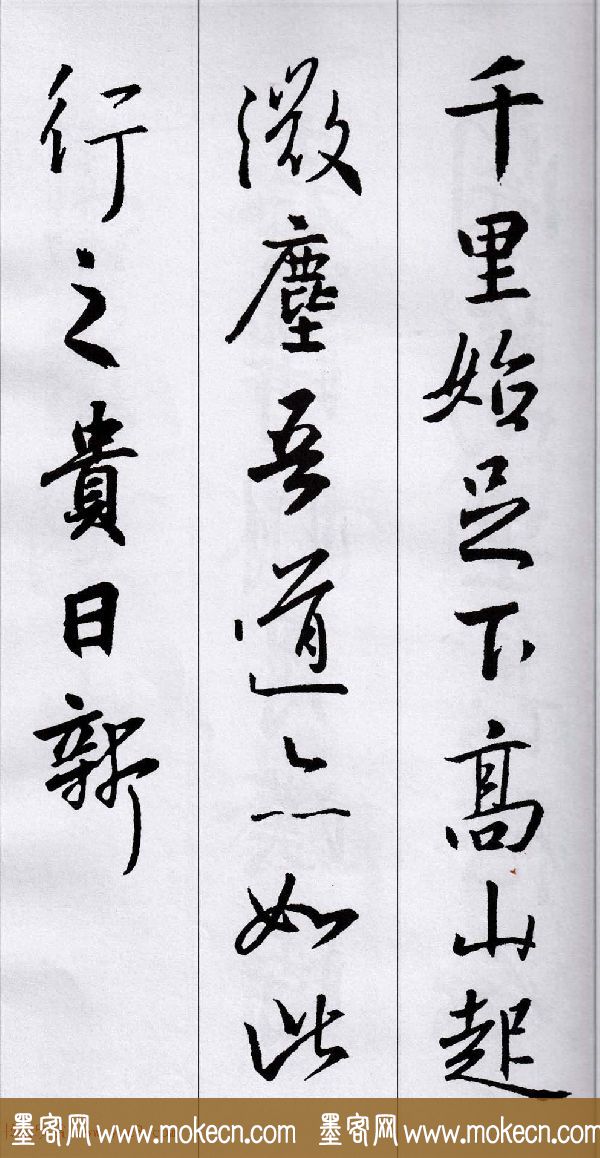 千里始足下高山起
微塵吾道亦如此
行之貴日新
墨客网 www.mokecn.com 墨客网 www.mokecn.com